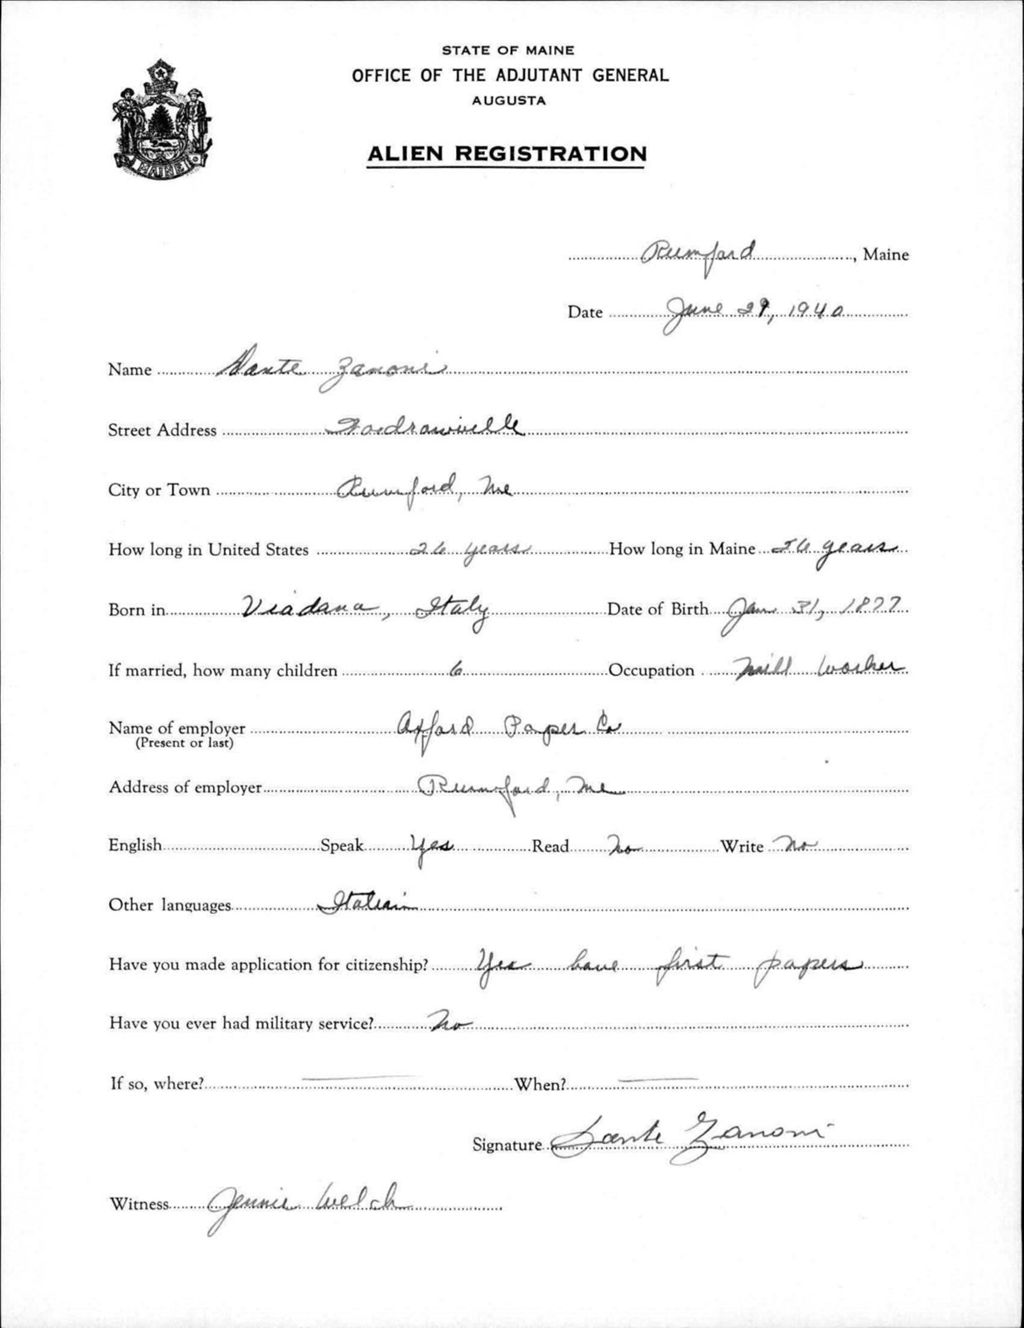 STATE OF MAINE
OFFICE OF THE ADJUTANT GENERAL
AUGUSTA
ALIEN REGISTRATION
MAINE
Rumford, Maine
Date June 29, 1940
Name Dante Zanoni
Street Address
City or Town Rumford, Me
How long in United States 26 years How long in Maine 26 years
Born in Viadana, Italy Date of Birth Jan 31, 1877
If married, how many children 6 Occupation Mill Worker
Name of employer Oxford Paper Co
(Present or last)
Address of employer Rumford, Me
English Speak Yes Read No Write No
Other languages Italian
Have you made application for citizenship? Yes have first papers
Have you ever had military service? No
If so, where? When?
Signature Dante Zanoni
Witness Jennie Welch